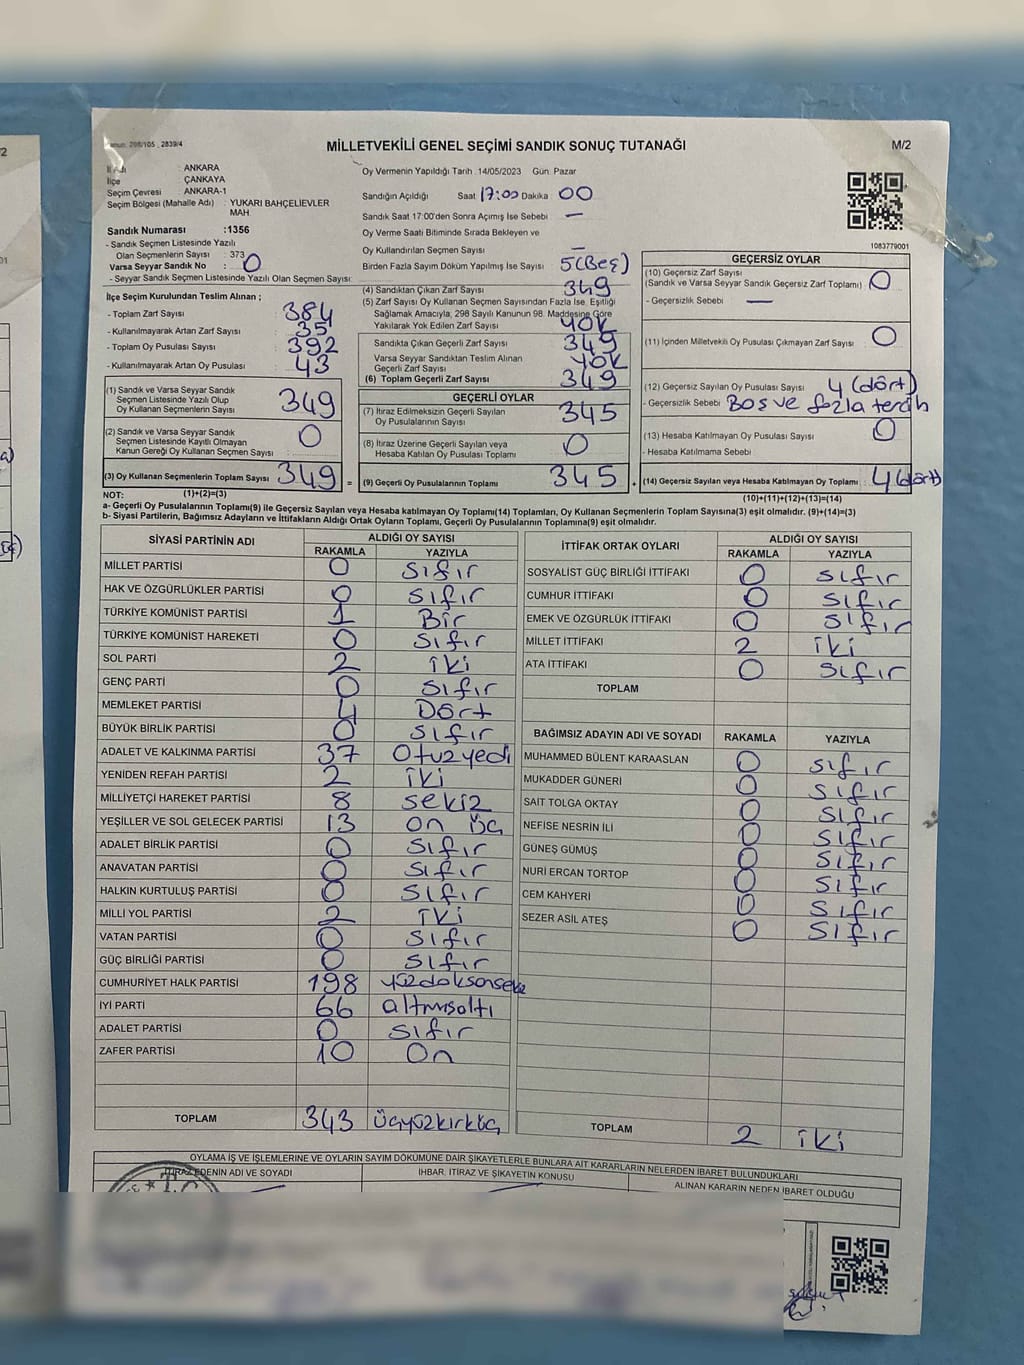 298/105 , 2839/4
MİLLETVEKİLİ GENEL SEÇİMİ SANDIK SONUÇ TUTANAĞI
M/2
İl Adı : ANKARA
İlçe : ÇANKAYA
Seçim Çevresi : ANKARA-1
Seçim Bölgesi (Mahalle Adı) : YUKARI BAHÇELİEVLER MAH.
Sandık Numarası :1356
- Sandık Seçmen Listesinde Yazılı
Olan Seçmenlerin Sayısı : 373
Varsa Seyyar Sandık No : 0
- Seyyar Sandık Seçmen Listesinde Yazılı Olan Seçmen Sayısı:
Oy Vermenin Yapıldığı Tarih :14/05/2023 Gün: Pazar
Sandığın Açıldığı Saat 17:00 Dakika 00
Sandık Saat 17:00'den Sonra Açımış İse Sebebi —
Oy Verme Saati Bitiminde Sırada Bekleyen ve
Oy Kullandırılan Seçmen Sayısı —
Birden Fazla Sayım Döküm Yapılmış İse Sayısı 5 (Beş)
1083779001
İlçe Seçim Kurulundan Teslim Alınan ;
- Toplam Zarf Sayısı : 384
- Kullanılmayarak Artan Zarf Sayısı : 35
- Toplam Oy Pusulası Sayısı : 392
- Kullanılmayarak Artan Oy Pusulası : 43
(1) Sandık ve Varsa Seyyar Sandık
Seçmen Listesinde Yazılı Olup
Oy Kullanan Seçmenlerin Sayısı : 349
(2) Sandık ve Varsa Seyyar Sandık
Seçmen Listesinde Kayıtlı Olmayan
Kanun Gereği Oy Kullanan Seçmen Sayısı : 0
(3) Oy Kullanan Seçmenlerin Toplam Sayısı : 349 =
(1)+(2)=(3)
(4) Sandıktan Çıkan Zarf Sayısı : 349
(5) Zarf Sayısı Oy Kullanan Seçmen Sayısından Fazla İse, Eşitliği
Sağlamak Amacıyla, 298 Sayılı Kanunun 98. Maddesine Göre
Yakılarak Yok Edilen Zarf Sayısı : YOK
Sandıkta Çıkan Geçerli Zarf Sayısı : 349
Varsa Seyyar Sandıktan Teslim Alınan
Geçerli Zarf Sayısı : YOK
(6) Toplam Geçerli Zarf Sayısı : 349
GEÇERLİ OYLAR
(7) İtiraz Edilmeksizin Geçerli Sayılan
Oy Pusulalarının Sayısı : 345
(8) İtiraz Üzerine Geçerli Sayılan veya
Hesaba Katılan Oy Pusulası Toplamı : 0
(9) Geçerli Oy Pusulalarının Toplamı : 345 +
GEÇERSİZ OYLAR
(10) Geçersiz Zarf Sayısı
(Sandık ve Varsa Seyyar Sandık Geçersiz Zarf Toplamı) : 0
- Geçersizlik Sebebi : —
(11) İçinden Milletvekili Oy Pusulası Çıkmayan Zarf Sayısı : 0
(12) Geçersiz Sayılan Oy Pusulası Sayısı : 4 (dört)
- Geçersizlik Sebebi : Boş ve fazla tercih
(13) Hesaba Katılmayan Oy Pusulası Sayısı : 0
- Hesaba Katılmama Sebebi :
(14) Geçersiz Sayılan veya Hesaba Katılmayan Oy Toplamı : 4 (dört)
(10)+(11)+(12)+(13)=(14)
NOT:
a- Geçerli Oy Pusulalarının Toplamı(9) ile Geçersiz Sayılan veya Hesaba katılmayan Oy Toplamı(14) Toplamları, Oy Kullanan Seçmenlerin Toplam Sayısına(3) eşit olmalıdır. (9)+(14)=(3)
b- Siyasi Partilerin, Bağımsız Adayların ve İttifakların Aldığı Ortak Oyların Toplamı, Geçerli Oy Pusulalarının Toplamına(9) eşit olmalıdır.
SİYASİ PARTİNİN ADI ALDIĞI OY SAYISI
RAKAMLA YAZIYLA
MİLLET PARTİSİ 0 sıfır
HAK VE ÖZGÜRLÜKLER PARTİSİ 0 sıfır
TÜRKİYE KOMÜNİST PARTİSİ 1 Bir
TÜRKİYE KOMÜNİST HAREKETİ 0 sıfır
SOL PARTİ 2 iki
GENÇ PARTİ 0 sıfır
MEMLEKET PARTİSİ 4 Dört
BÜYÜK BİRLİK PARTİSİ 0 sıfır
ADALET VE KALKINMA PARTİSİ 37 Otuzyedi
YENİDEN REFAH PARTİSİ 2 iki
MİLLİYETÇİ HAREKET PARTİSİ 8 sekiz
YEŞİLLER VE SOL GELECEK PARTİSİ 13 on üç
ADALET BİRLİK PARTİSİ 0 sıfır
ANAVATAN PARTİSİ 0 sıfır
HALKIN KURTULUŞ PARTİSİ 0 sıfır
MİLLİ YOL PARTİSİ 2 iki
VATAN PARTİSİ 0 sıfır
GÜÇ BİRLİĞİ PARTİSİ 0 sıfır
CUMHURİYET HALK PARTİSİ 198 yüzdoksansekiz
İYİ PARTİ 66 altmışaltı
ADALET PARTİSİ 0 sıfır
ZAFER PARTİSİ 10 On
TOPLAM 343 üçyüzkırküç
İTTİFAK ORTAK OYLARI ALDIĞI OY SAYISI
RAKAMLA YAZIYLA
SOSYALİST GÜÇ BİRLİĞİ İTTİFAKI 0 sıfır
CUMHUR İTTİFAKI 0 sıfır
EMEK VE ÖZGÜRLÜK İTTİFAKI 0 sıfır
MİLLET İTTİFAKI 2 iki
ATA İTTİFAKI 0 sıfır
TOPLAM
BAĞIMSIZ ADAYIN ADI VE SOYADI RAKAMLA YAZIYLA
MUHAMMED BÜLENT KARAASLAN 0 sıfır
MUKADDER GÜNERİ 0 sıfır
SAİT TOLGA OKTAY 0 sıfır
NEFİSE NESRİN İLİ 0 sıfır
GÜNEŞ GÜMÜŞ 0 sıfır
NURİ ERCAN TORTOP 0 sıfır
CEM KAHYERİ 0 sıfır
SEZER ASİL ATEŞ 0 sıfır
TOPLAM 2 iki
OYLAMA İŞ VE İŞLEMLERİNE VE OYLARIN SAYIM DÖKÜMÜNE DAİR ŞİKAYETLERLE BUNLARA AİT KARARLARIN NELERDEN İBARET BULUNDUKLARI
İTİRAZ EDENİN ADI VE SOYADI İHBAR, İTİRAZ VE ŞİKAYETİN KONUSU ALINAN KARARIN NEDEN İBARET OLDUĞU
T.C.